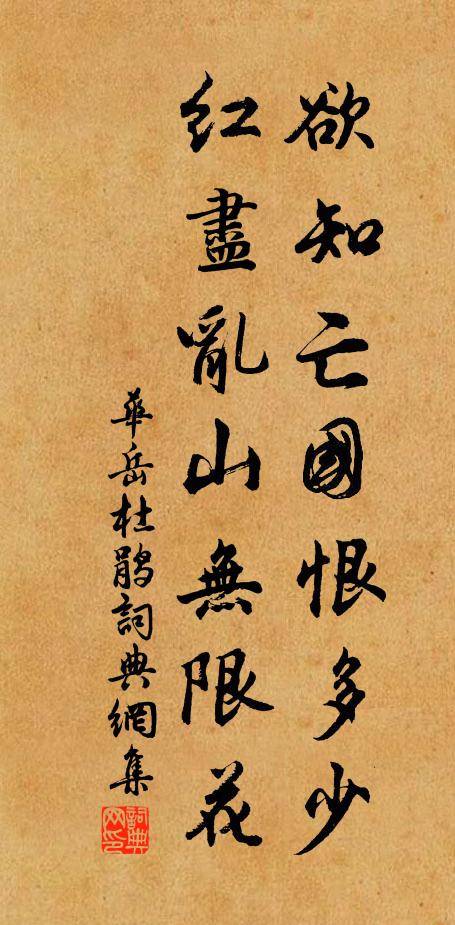 欲知亡國恨多少
紅盡亂山無限花
華岳杜鵑詞典網集
詞典网印